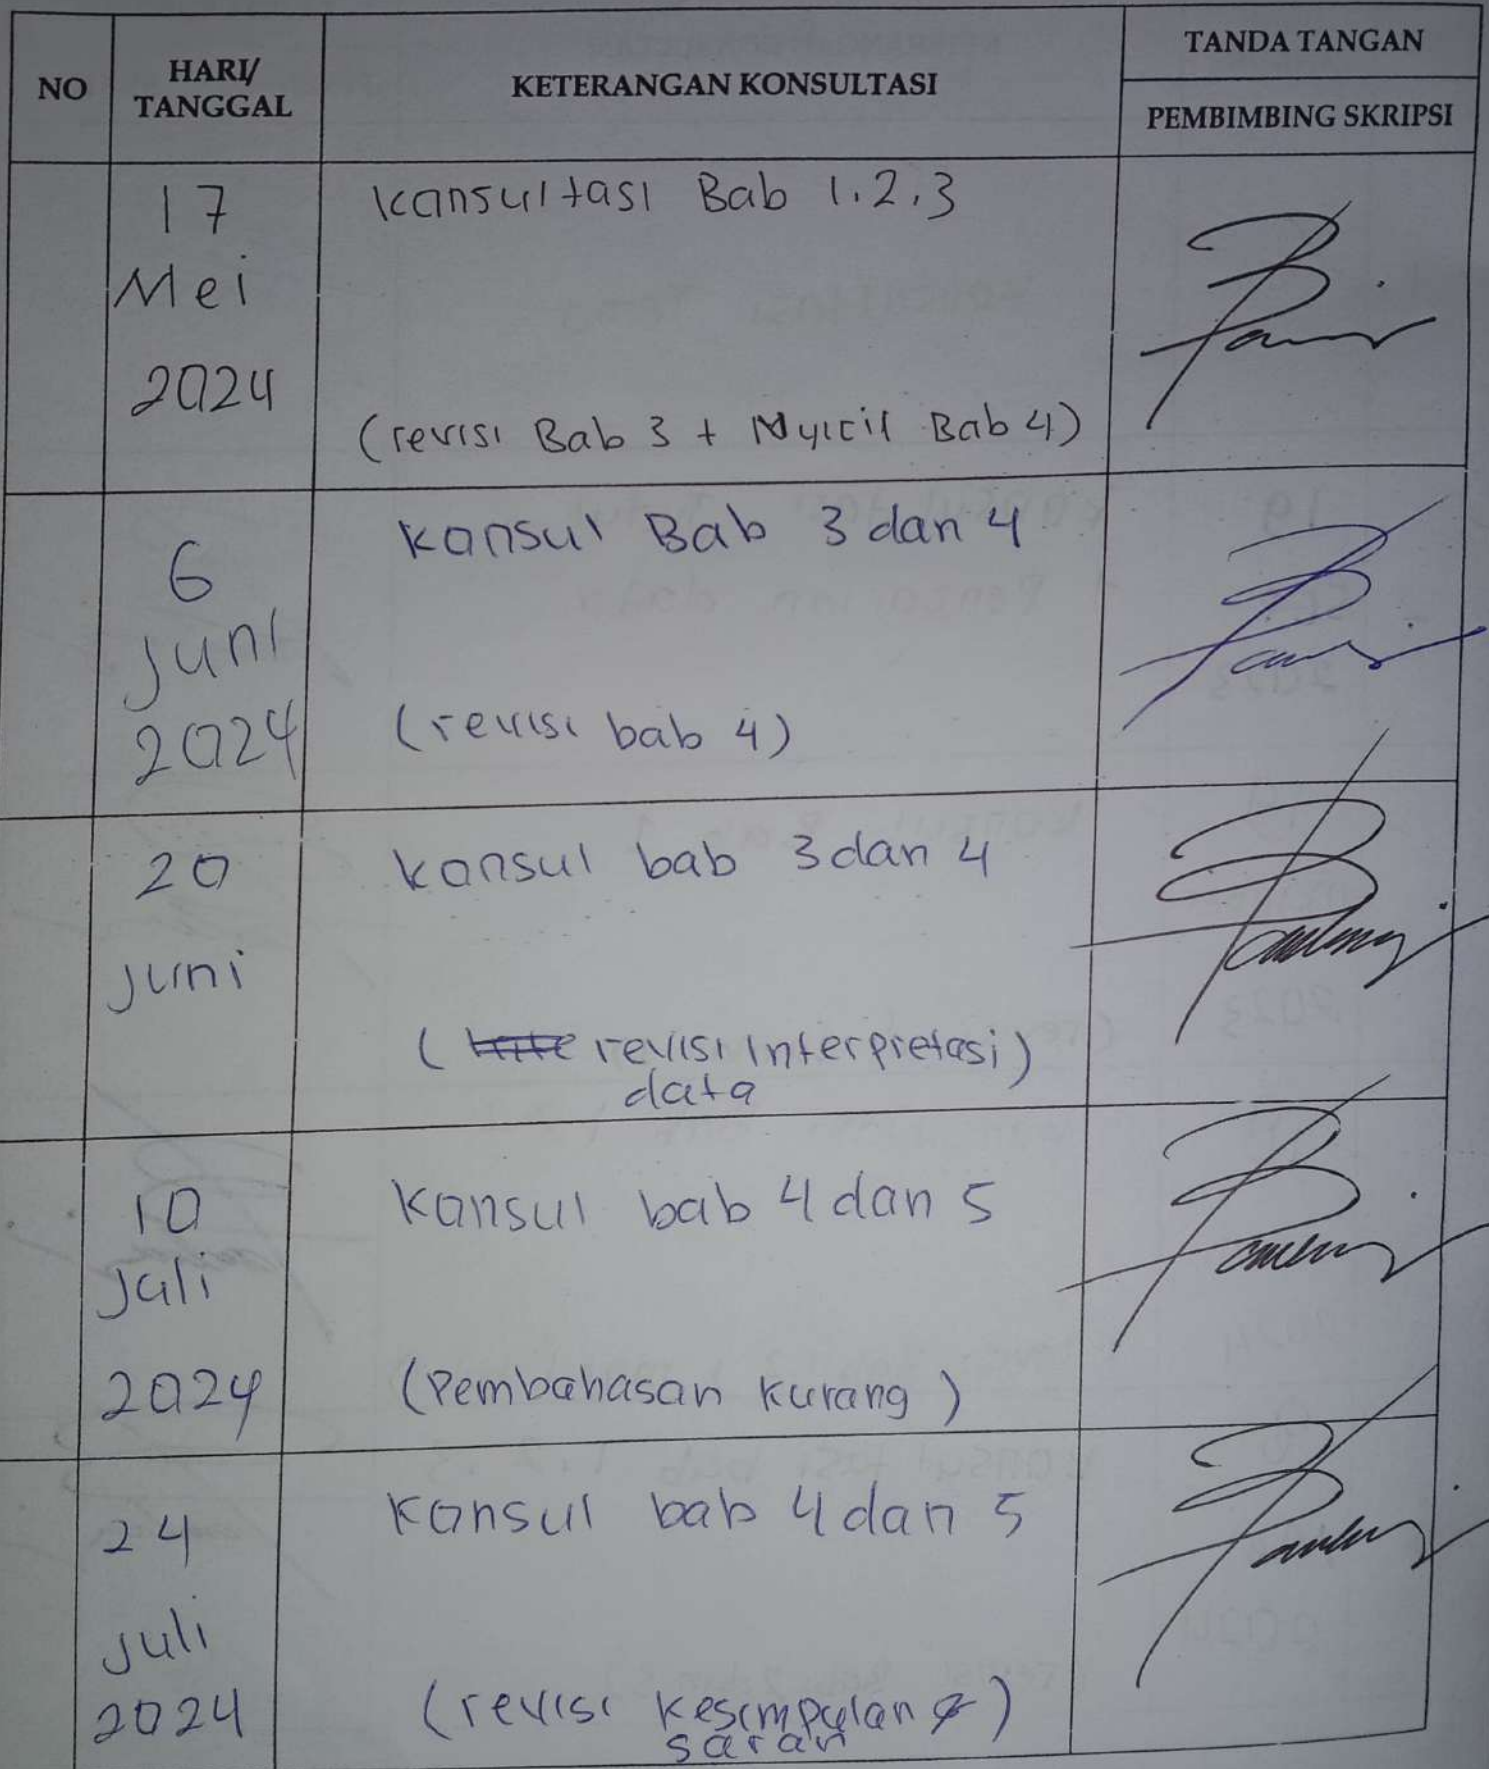 NO
HARI/
TANGGAL
KETERANGAN KONSULTASI
TANDA TANGAN
PEMBIMBING SKRIPSI
17
Mei
2024
Konsultasi Bab 1.2.3
(revisi Bab 3 + Nyicil Bab 4)
6
Juni
2024
Konsul Bab 3 dan 4
(revisi bab 4)
20
Juni
Konsul bab 3 dan 4
( revisi Interpretasi)
data
10
Juli
2024
Konsul bab 4 dan 5
(Pembahasan Kurang )
24
Juli
2024
Konsul bab 4 dan 5
(revisi Kesimpulan & )
saran